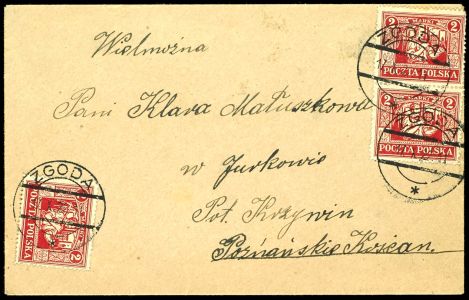 Wielmożna
Pani Klara Matuszkowa
w Jurkowie
Pot. Krzywin
Poznańskie Kościan.
ZGODA
2 MARKI 2
POCZTA POLSKA
ZGODA
2 2
POCZTA POLSKA
ZGODA
2 2
POCZTA POLSKA